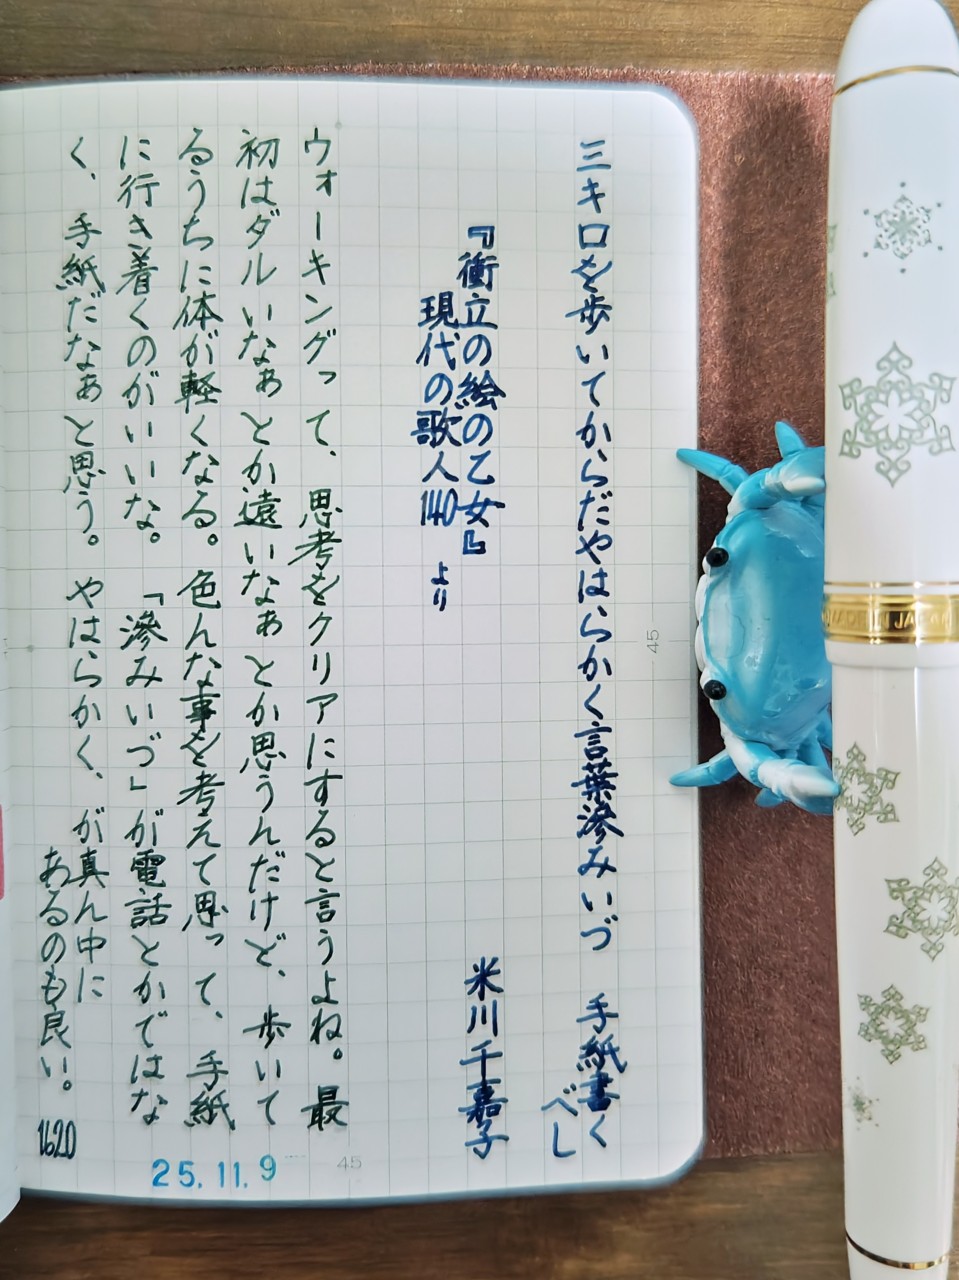 三キロを歩いてからだやはらかく言葉滲みいづ 手紙書く
べし
米川千嘉子
『衝立の絵の乙女』
現代の歌人140 より
ウォーキングって、思考をクリアにすると言うよね。最
初はダルいなぁとか遠いなぁとか思うんだけど、歩いて
るうちに体が軽くなる。色んな事を考えて思って、手紙
に行き着くのがいいな。「滲みいづ」が電話とかではな
く、手紙だなぁと思う。やはらかく、が真ん中に
あるのも良い。
1620
25.11.9
45
45